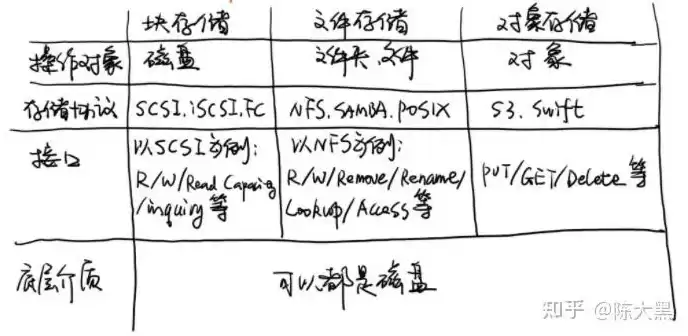 块存储 文件存储 对象存储
操作对象 磁盘 文件夹、文件 对象
存储协议 SCSI.iSCSI.FC NFS.SAMBA.POSIX S3.Swift
接口 以SCSI为例: 以NFS为例: PUT/GET/Delete等
R/W/Read Capacity R/W/Remove/Rename/
/inquiry等 Lookup/Access等
底层介质 可以都是磁盘
知乎 @陈大黑